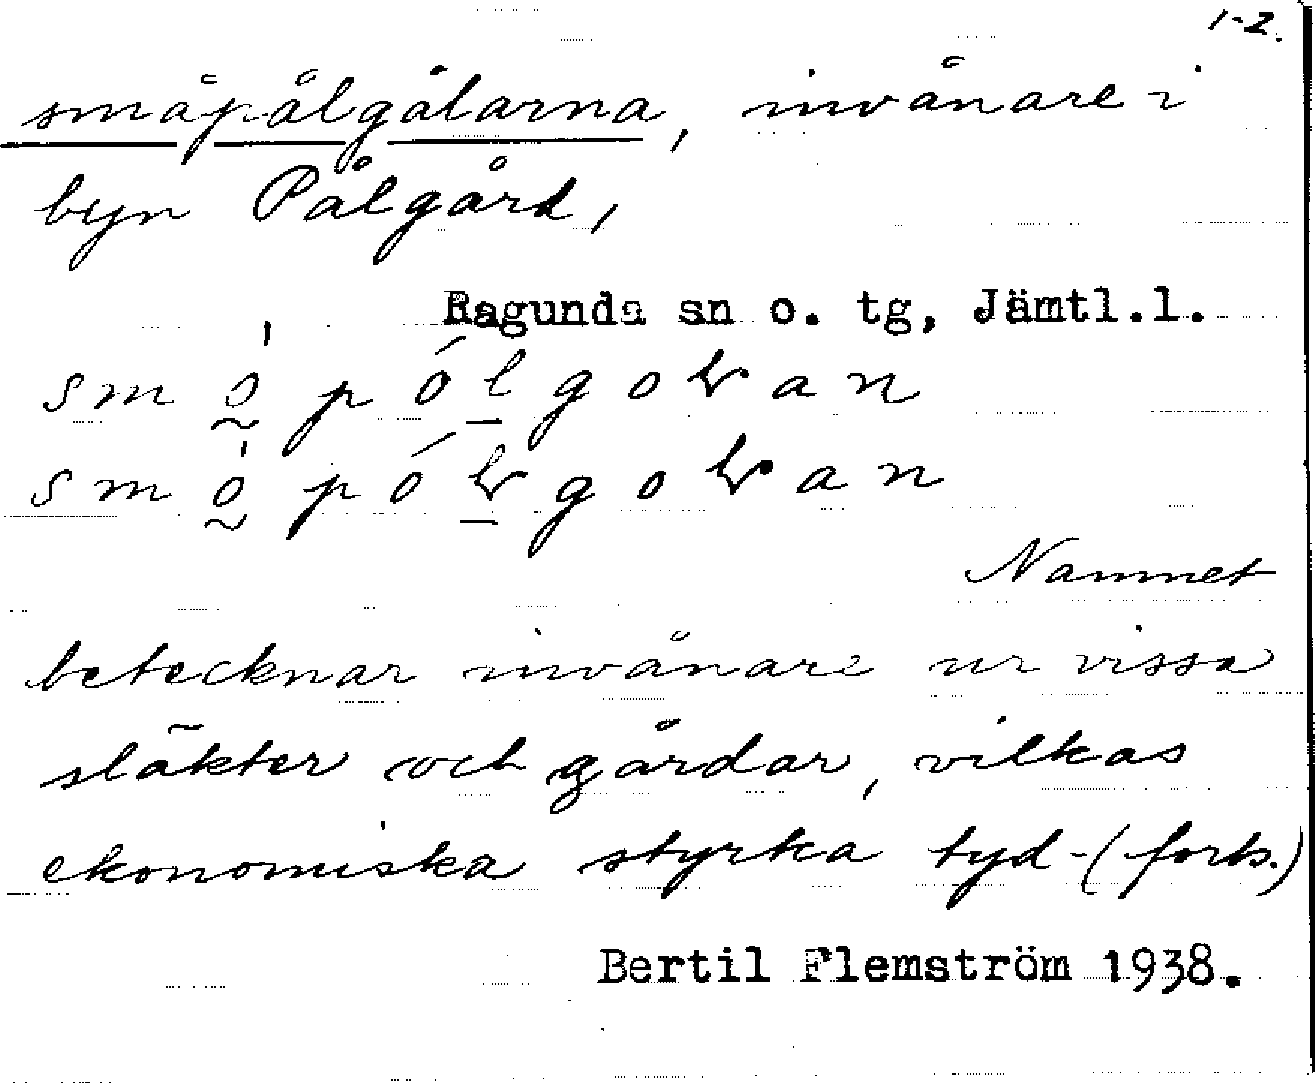 1-2.
småpålgålarna, invånare i
byn Pålgård,
Ragunda sn o. tg, Jämtl.l.
Namnet
betecknar invånare ur vissa
släkter och gårdar, vilkas
ekonomiska styrka tyd- (forts.)
Bertil Flemström 1938.